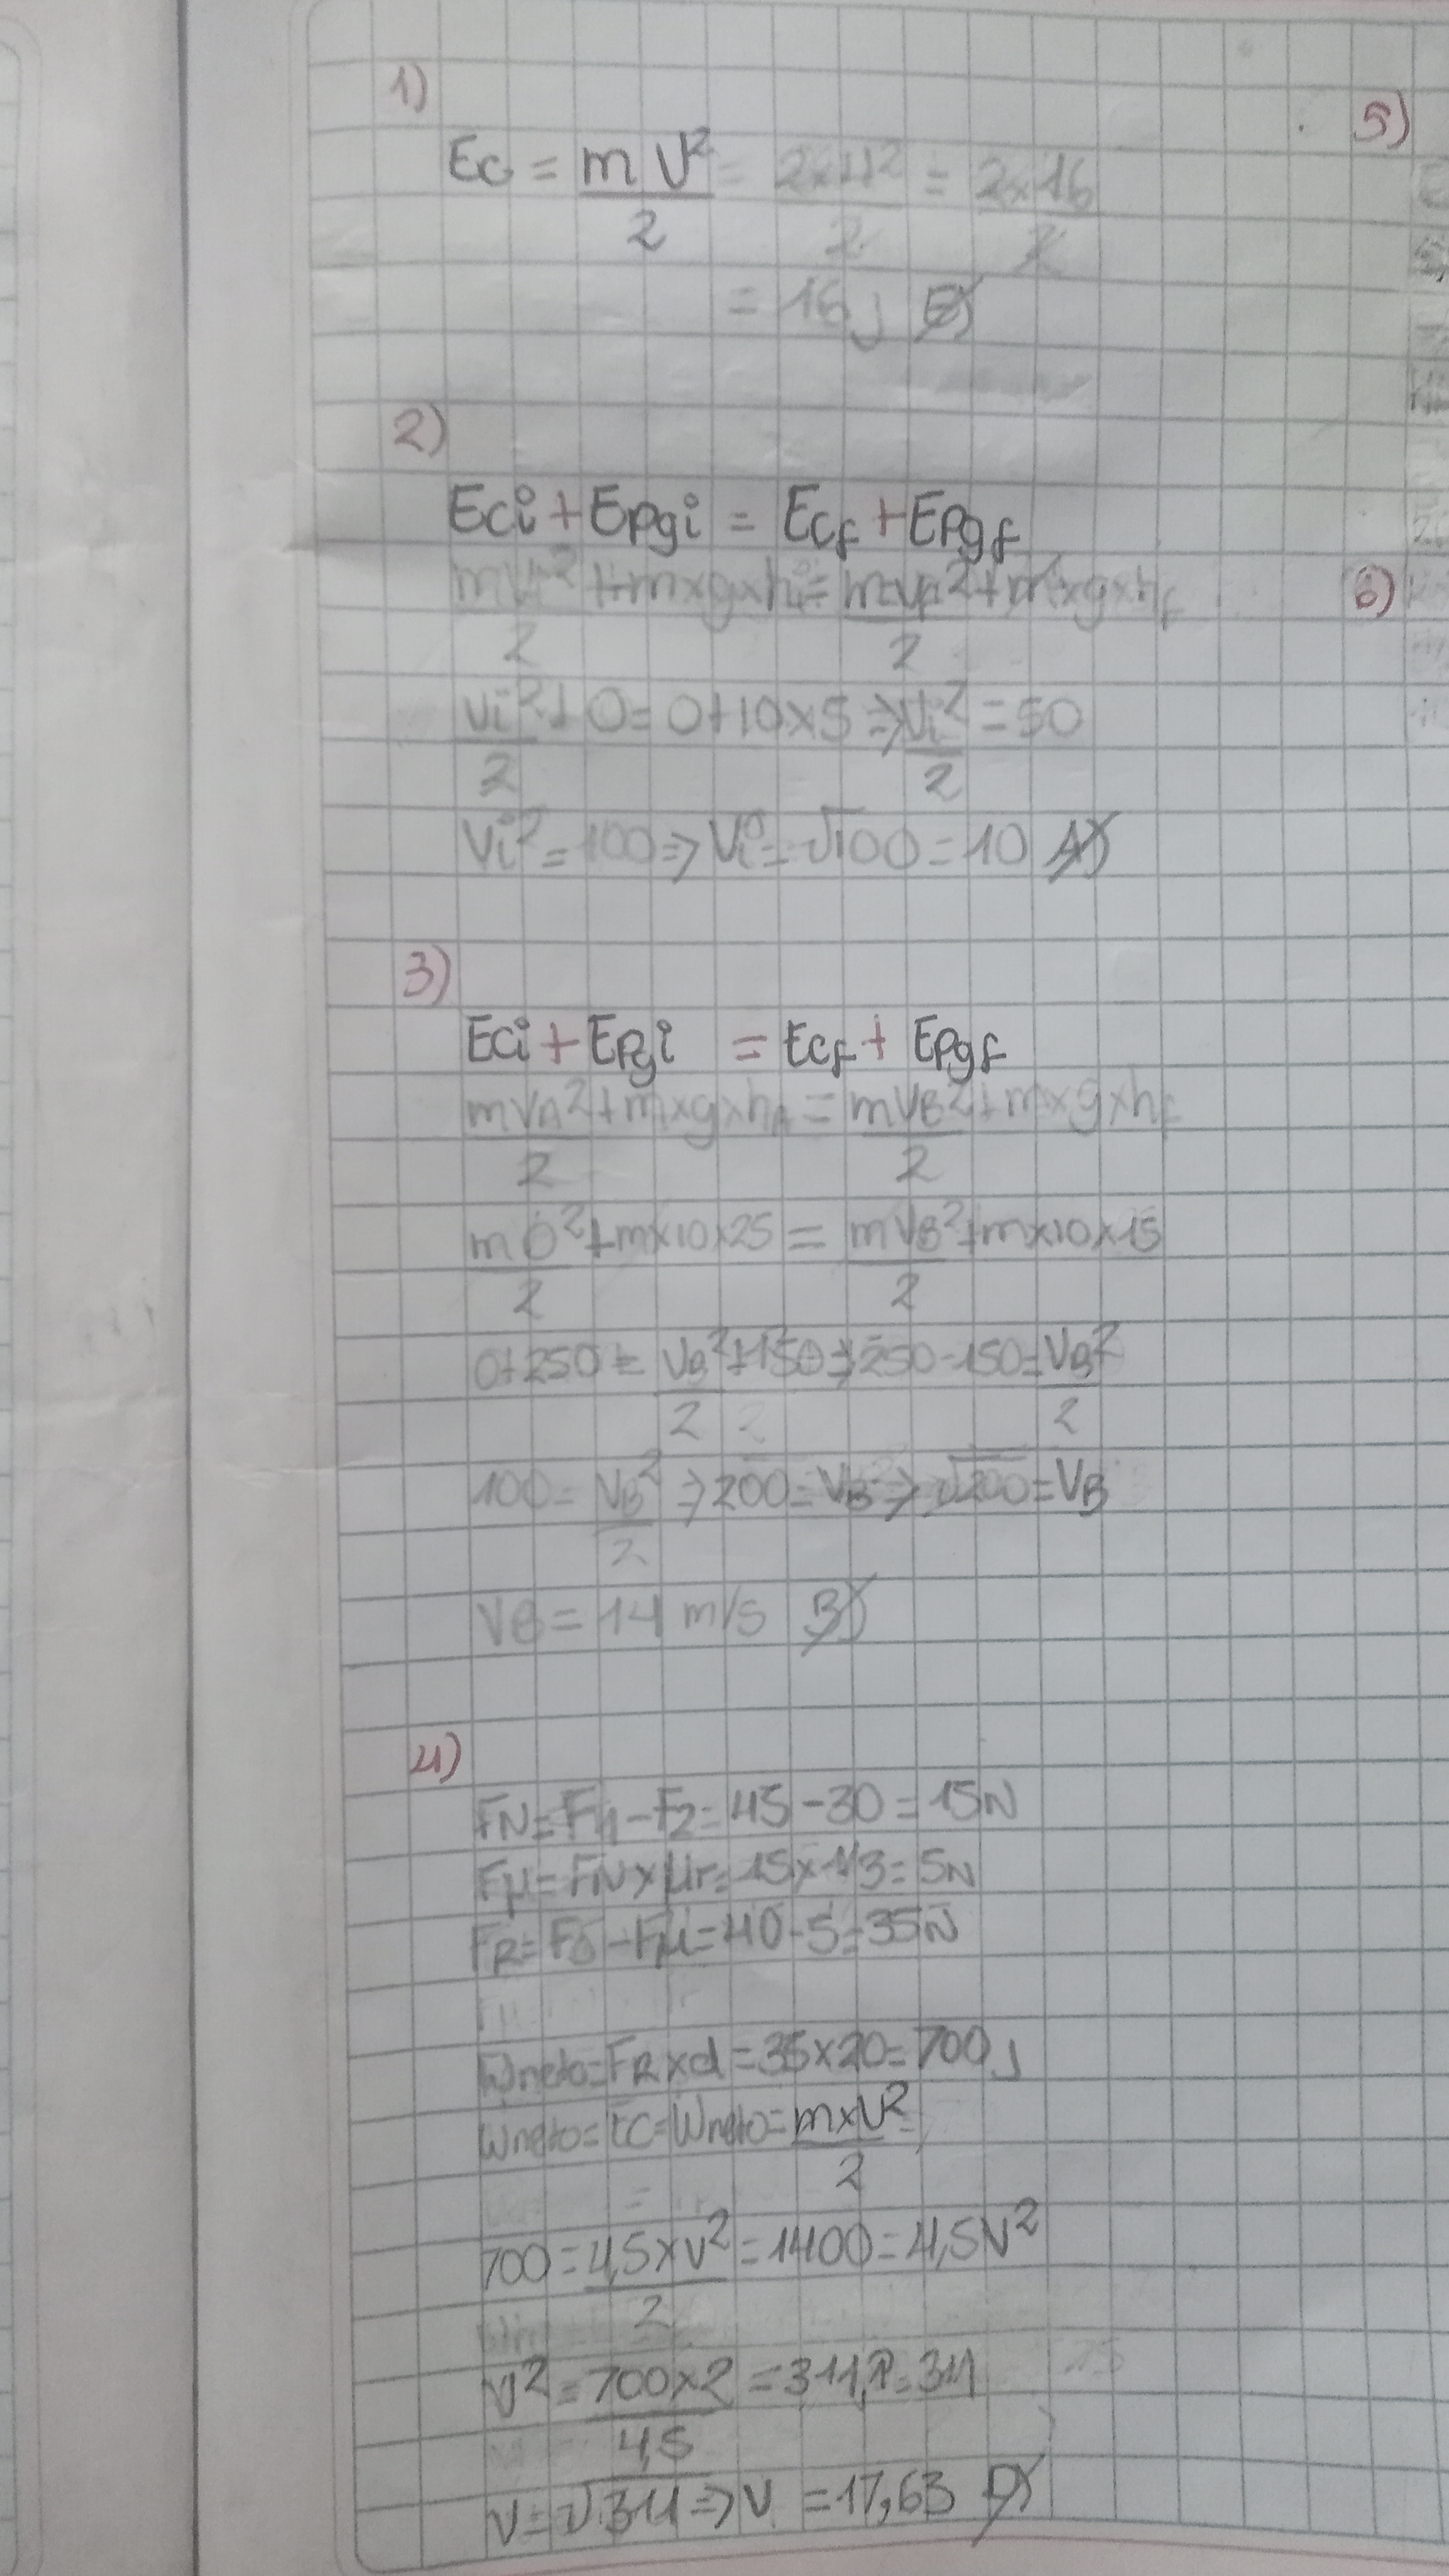 1)
Ec = m V² / 2 = 2x4² / 2 = 2x16 / 2
= 16 J E)
2)
Eci + Epgi = Ecf + Epgf
mVi² / 2 + mxgxhi = mVf² / 2 + mxgxhf
Vi² / 2 + 0 = 0 + 10x5 ⇒ Vi² / 2 = 50
Vi² = 100 ⇒ Vi = √100 = 10 A)
3)
Eci + Epgi = Ecf + Epgf
mVA² / 2 + mxgxhA = mVB² / 2 + mxgxhf
m0² / 2 + mx10x25 = mVB² / 2 + mx10x15
0+250 = VB² / 2 + 150 ⇒ 250-150 = VB² / 2
100 = VB² / 2 ⇒ 200 = VB ⇒ √200 = VB
VB = 14 m/s B)
4)
FN = F1 - F2 = 45 - 30 = 15N
Fμ = FN x μr = 15 x 1/3 = 5N
FR = F5 - Fμ = 40 - 5 = 35N
Wneto = FR x d = 35x20 = 700J
Wneto = EC = Wneto = mxV² / 2
700 = 4,5xV² / 2 = 1400 = 4,5V²
V² = 700x2 / 4,5 = 311, = 311
V = √311 ⇒ V = 17,63 D)
5)
6)